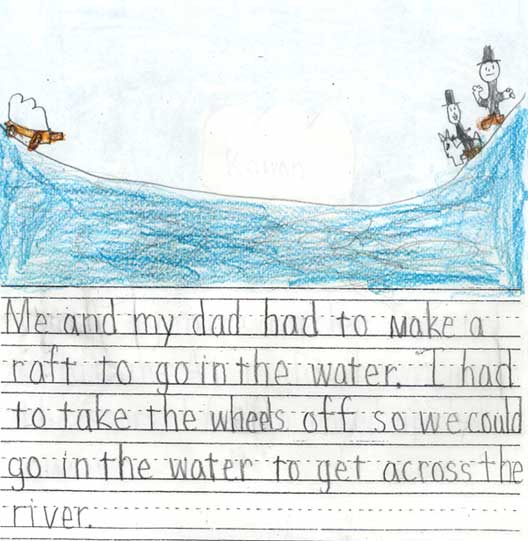 Me and my dad had to make a
raft to go in the water. I had
to take the wheels off so we could
go in the water to get across the
river.